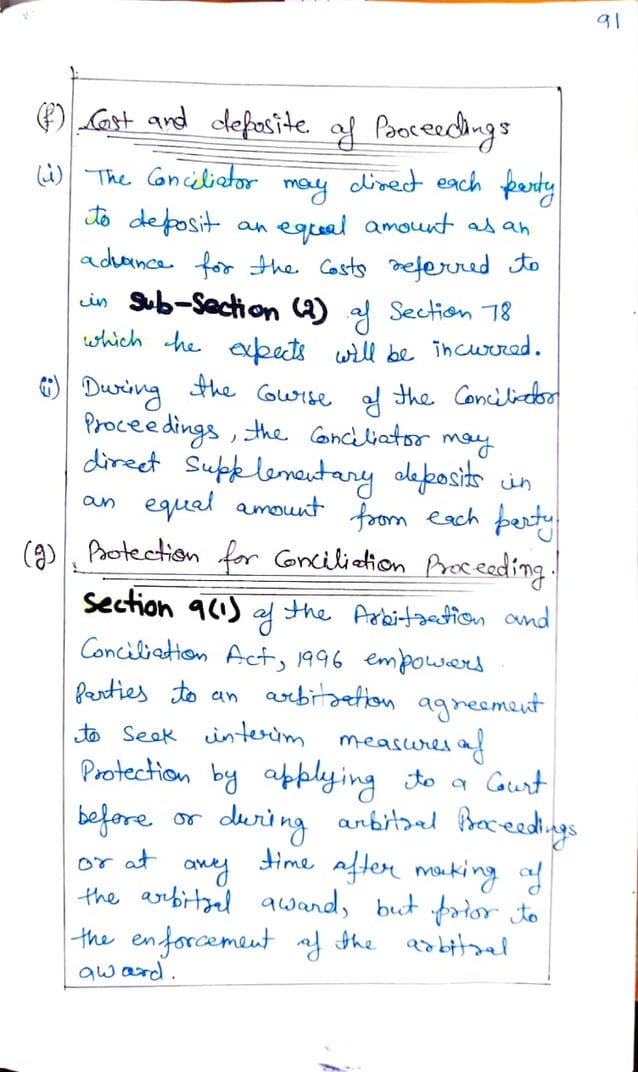 91
(f) Cost and deposite of Proceedings
(i) The Conciliator may direct each party
to deposit an equal amount as an
advance for the Costs referred to
in Sub-Section (2) of Section 78
which he expects will be incurred.
(ii) During the Course of the Conciliator
Proceedings, the Conciliator may
direct Supplementary deposits in
an equal amount from each party.
(g) Protection for Conciliation Proceeding.
Section 9(1) of the Arbitration and
Conciliation Act, 1996 empowers
Parties to an arbitration agreement
to Seek interim measures of
Protection by applying to a Court
before or during arbitral Proceedings
or at any time after making of
the arbitral award, but prior to
the enforcement of the arbitral
award.